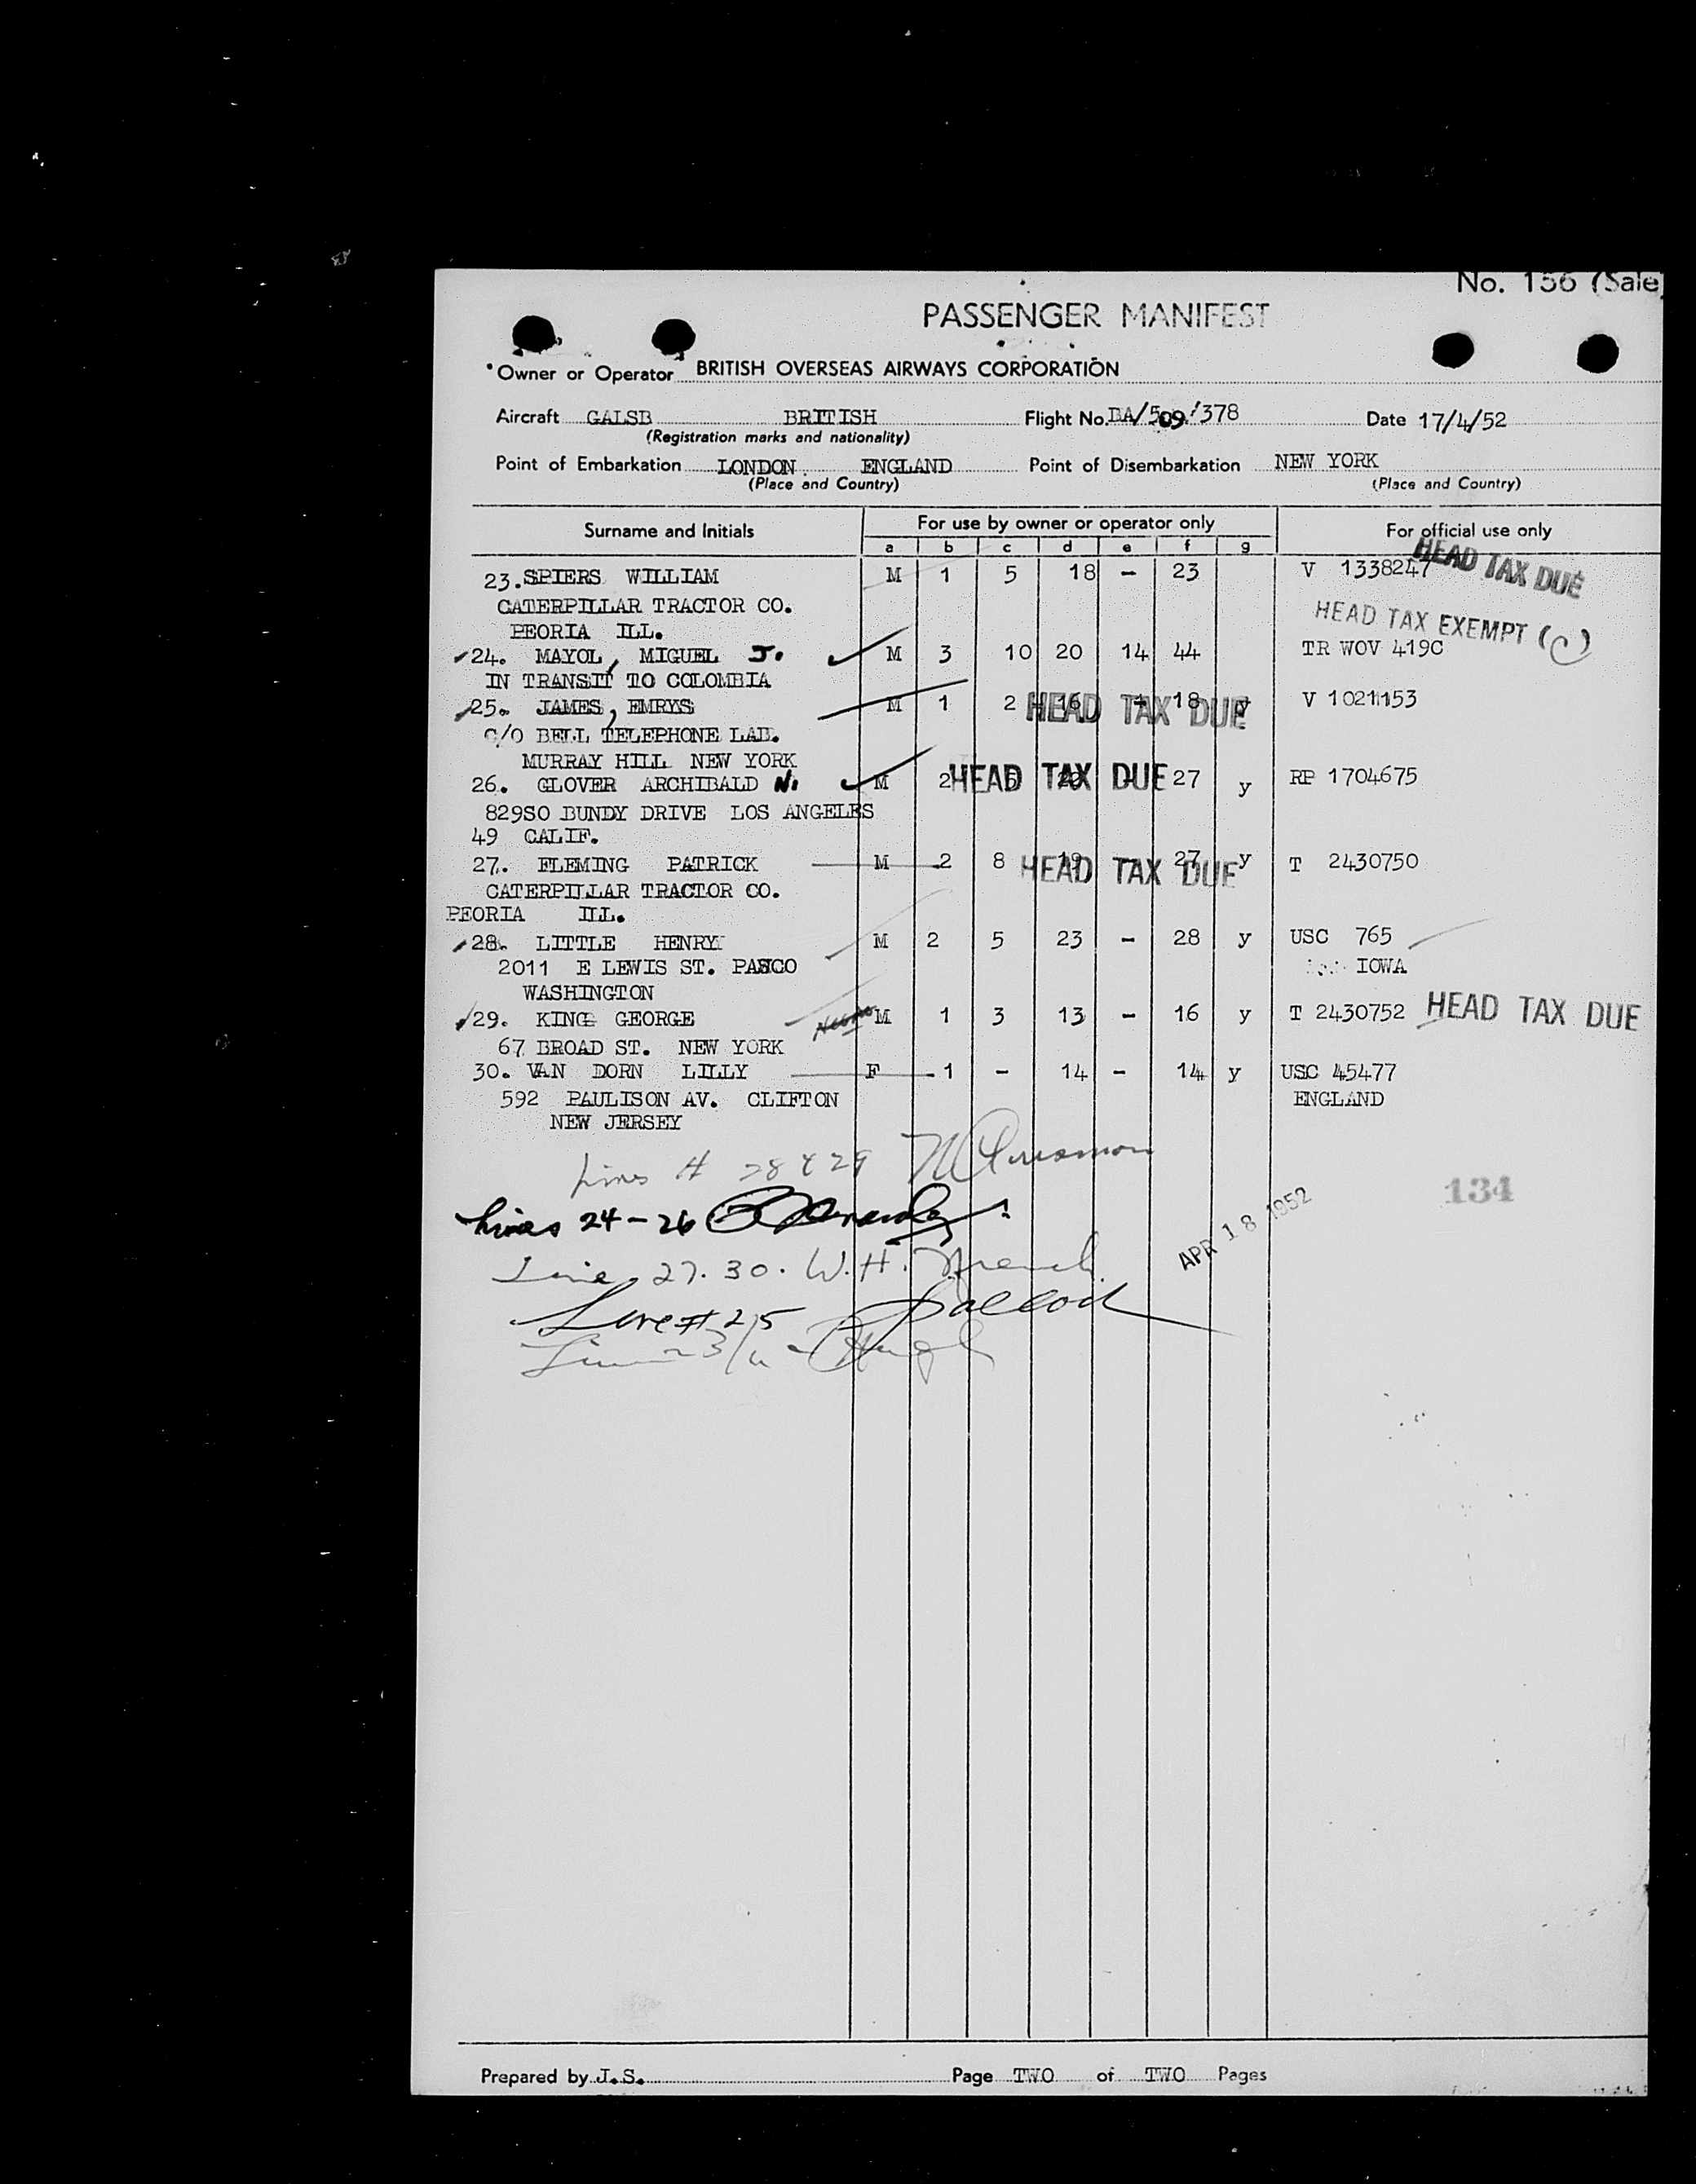 No. 156 (Sale
PASSENGER MANIFEST
Owner or Operator BRITISH OVERSEAS AIRWAYS CORPORATION
Aircraft GALSB BRITISH Flight No. BA/509/378 Date 17/4/52
(Registration marks and nationality)
Point of Embarkation LONDON ENGLAND Point of Disembarkation NEW YORK
(Place and Country) (Place and Country)
Surname and Initials For use by owner or operator only For official use only
a b c d e f g
HEAD TAX DUE
23. SPIERS WILLIAM M 1 5 18 - 23 V 1338247
CATERPILLAR TRACTOR CO.
HEAD TAX EXEMPT (c)
PEORIA ILL.
24. MAYOL, MIGUEL J. M 3 10 20 14 44 TR WOV 419C
IN TRANSIT TO COLOMBIA
25. JAMES, EMRYS M 1 2 16 - 18 y V 1021153
HEAD TAX DUE
C/O BELL TELEPHONE LAB.
MURRAY HILL NEW YORK
26. GLOVER ARCHIBALD N. M 2 5 20 - 27 y RP 1704675
HEAD TAX DUE
829SO BUNDY DRIVE LOS ANGELES
49 CALIF.
27. FLEMING PATRICK M 2 8 19 - 27 y T 2430750
HEAD TAX DUE
CATERPILLAR TRACTOR CO.
PEORIA ILL.
28. LITTLE HENRY M 2 5 23 - 28 y USC 765
2011 E LEWIS ST. PASCO IOWA
WASHINGTON
29. KING GEORGE M 1 3 13 - 16 y T 2430752 HEAD TAX DUE
67 BROAD ST. NEW YORK
30. VAN DORN LILLY F 1 - 14 - 14 y USC 45477
592 PAULISON AV. CLIFTON ENGLAND
NEW JERSEY
Lines # 28 & 29
134
Lines 24-26
APR 18 1952
Line 27. 30. W.H. French
Line # 25
Prepared by J.S. Page TWO of TWO Pages